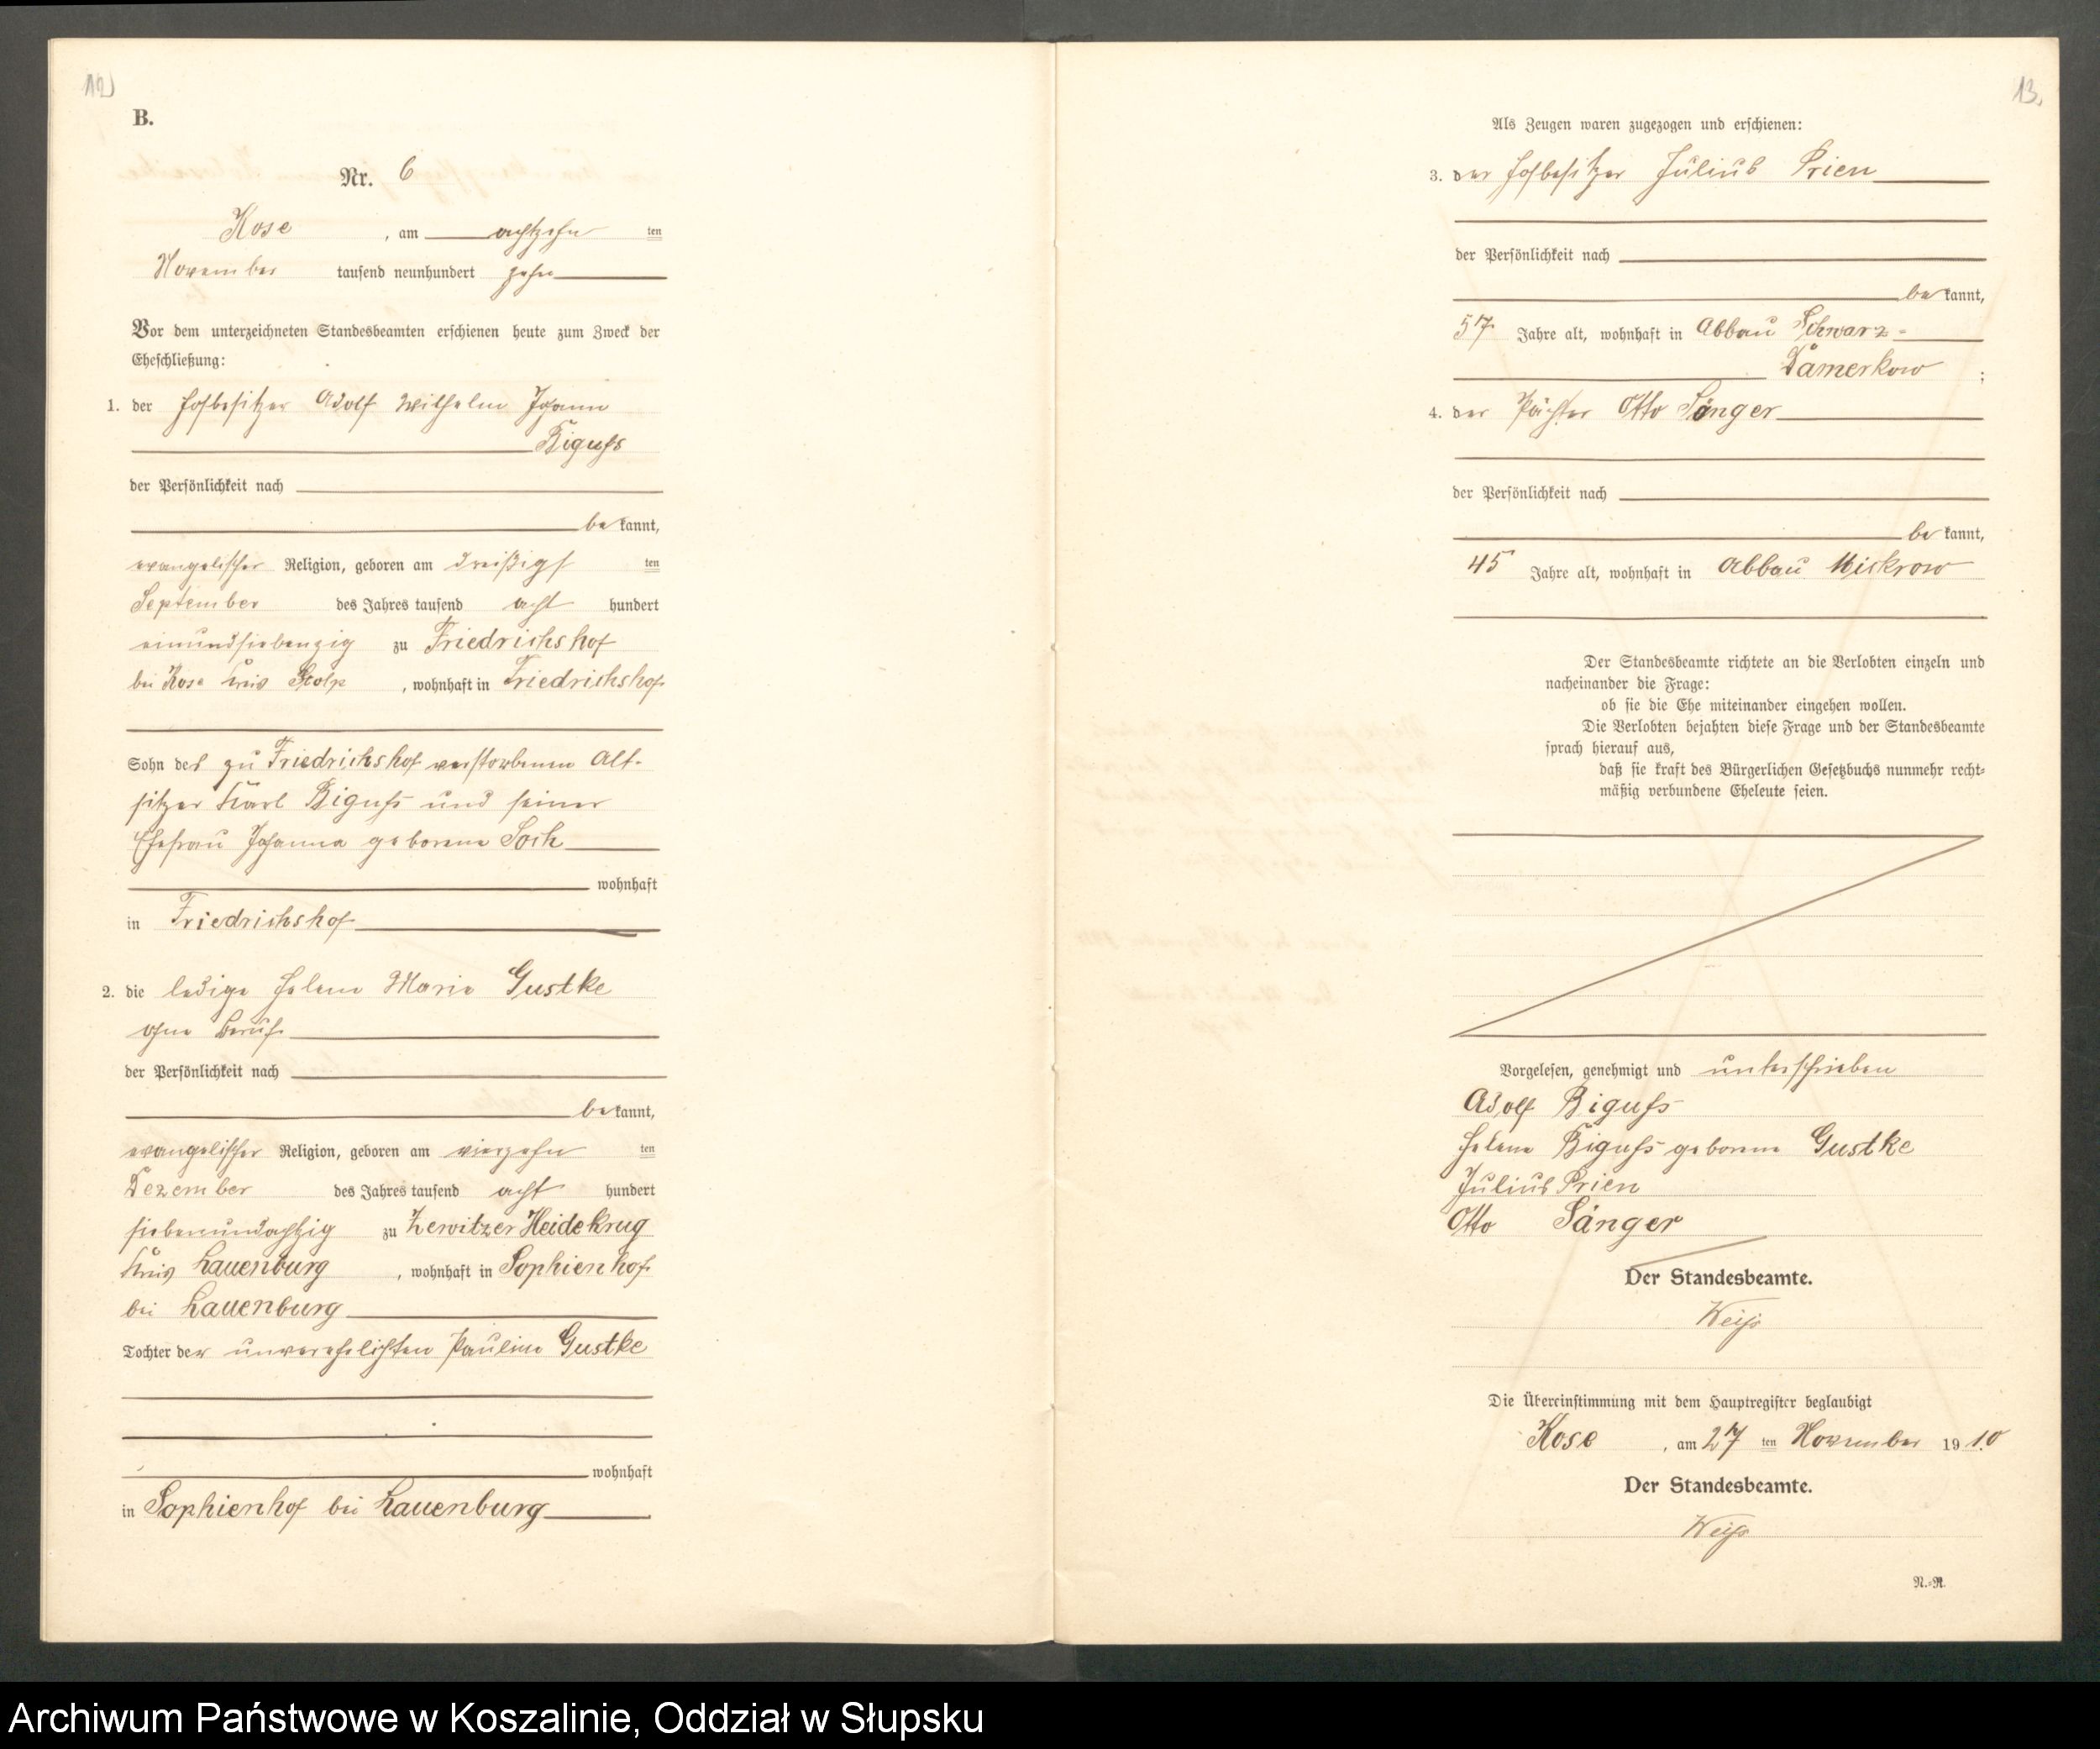 12)
B.
Nr. 6
Kose, am achtzehn ten
November tausend neunhundert zehn
Vor dem unterzeichneten Standesbeamten erschienen heute zum Zweck der
Eheschließung:
1. der Hofbesitzer Adolf Wilhelm Johann
Biguhs
der Persönlichkeit nach
be kannt,
evangelischer Religion, geboren am dreißigs ten
September des Jahres tausend acht hundert
einundsiebenzig zu Friedrichshof
bei Kose Kreis Stolp, wohnhaft in Friedrichshof
Sohn des zu Friedrichshof verstorbenen Alt-
sitzer Karl Biguhs und seiner
Ehefrau Johanna geborene Sock
wohnhaft
in Friedrichshof
2. die ledige Helene Marie Gustke
ohne Beruf
der Persönlichkeit nach
be kannt,
evangelischer Religion, geboren am vierzehn ten
Dezember des Jahres tausend acht hundert
siebenundachtzig zu Zewitzer Heidekrug
Kreis Lauenburg, wohnhaft in Sophienhof
bei Lauenburg
Tochter der unverehelichten Pauline Gustke
wohnhaft
in Sophienhof bei Lauenburg
13.
Als Zeugen waren zugezogen und erschienen:
3. der Hofbesitzer Julius Prien
der Persönlichkeit nach
be kannt,
57 Jahre alt, wohnhaft in Abbau Schwarz-
Damerkow;
4. der Pächter Otto Sänger
der Persönlichkeit nach
be kannt,
45 Jahre alt, wohnhaft in Abbau Mickrow
Der Standesbeamte richtete an die Verlobten einzeln und
nacheinander die Frage:
ob sie die Ehe miteinander eingehen wollen.
Die Verlobten bejahten diese Frage und der Standesbeamte
sprach hierauf aus,
daß sie kraft des Bürgerlichen Gesetzbuchs nunmehr recht-
mäßig verbundene Eheleute seien.
Vorgelesen, genehmigt und unterschrieben
Adolf Biguhs
Helene Biguhs geborene Gustke
Julius Prien
Otto Sänger
Der Standesbeamte.
Weiß
Die Übereinstimmung mit dem Hauptregister beglaubigt
Kose, am 27 ten November 1910
Der Standesbeamte.
Weiß
N.-R.
Archiwum Państwowe w Koszalinie, Oddział w Słupsku